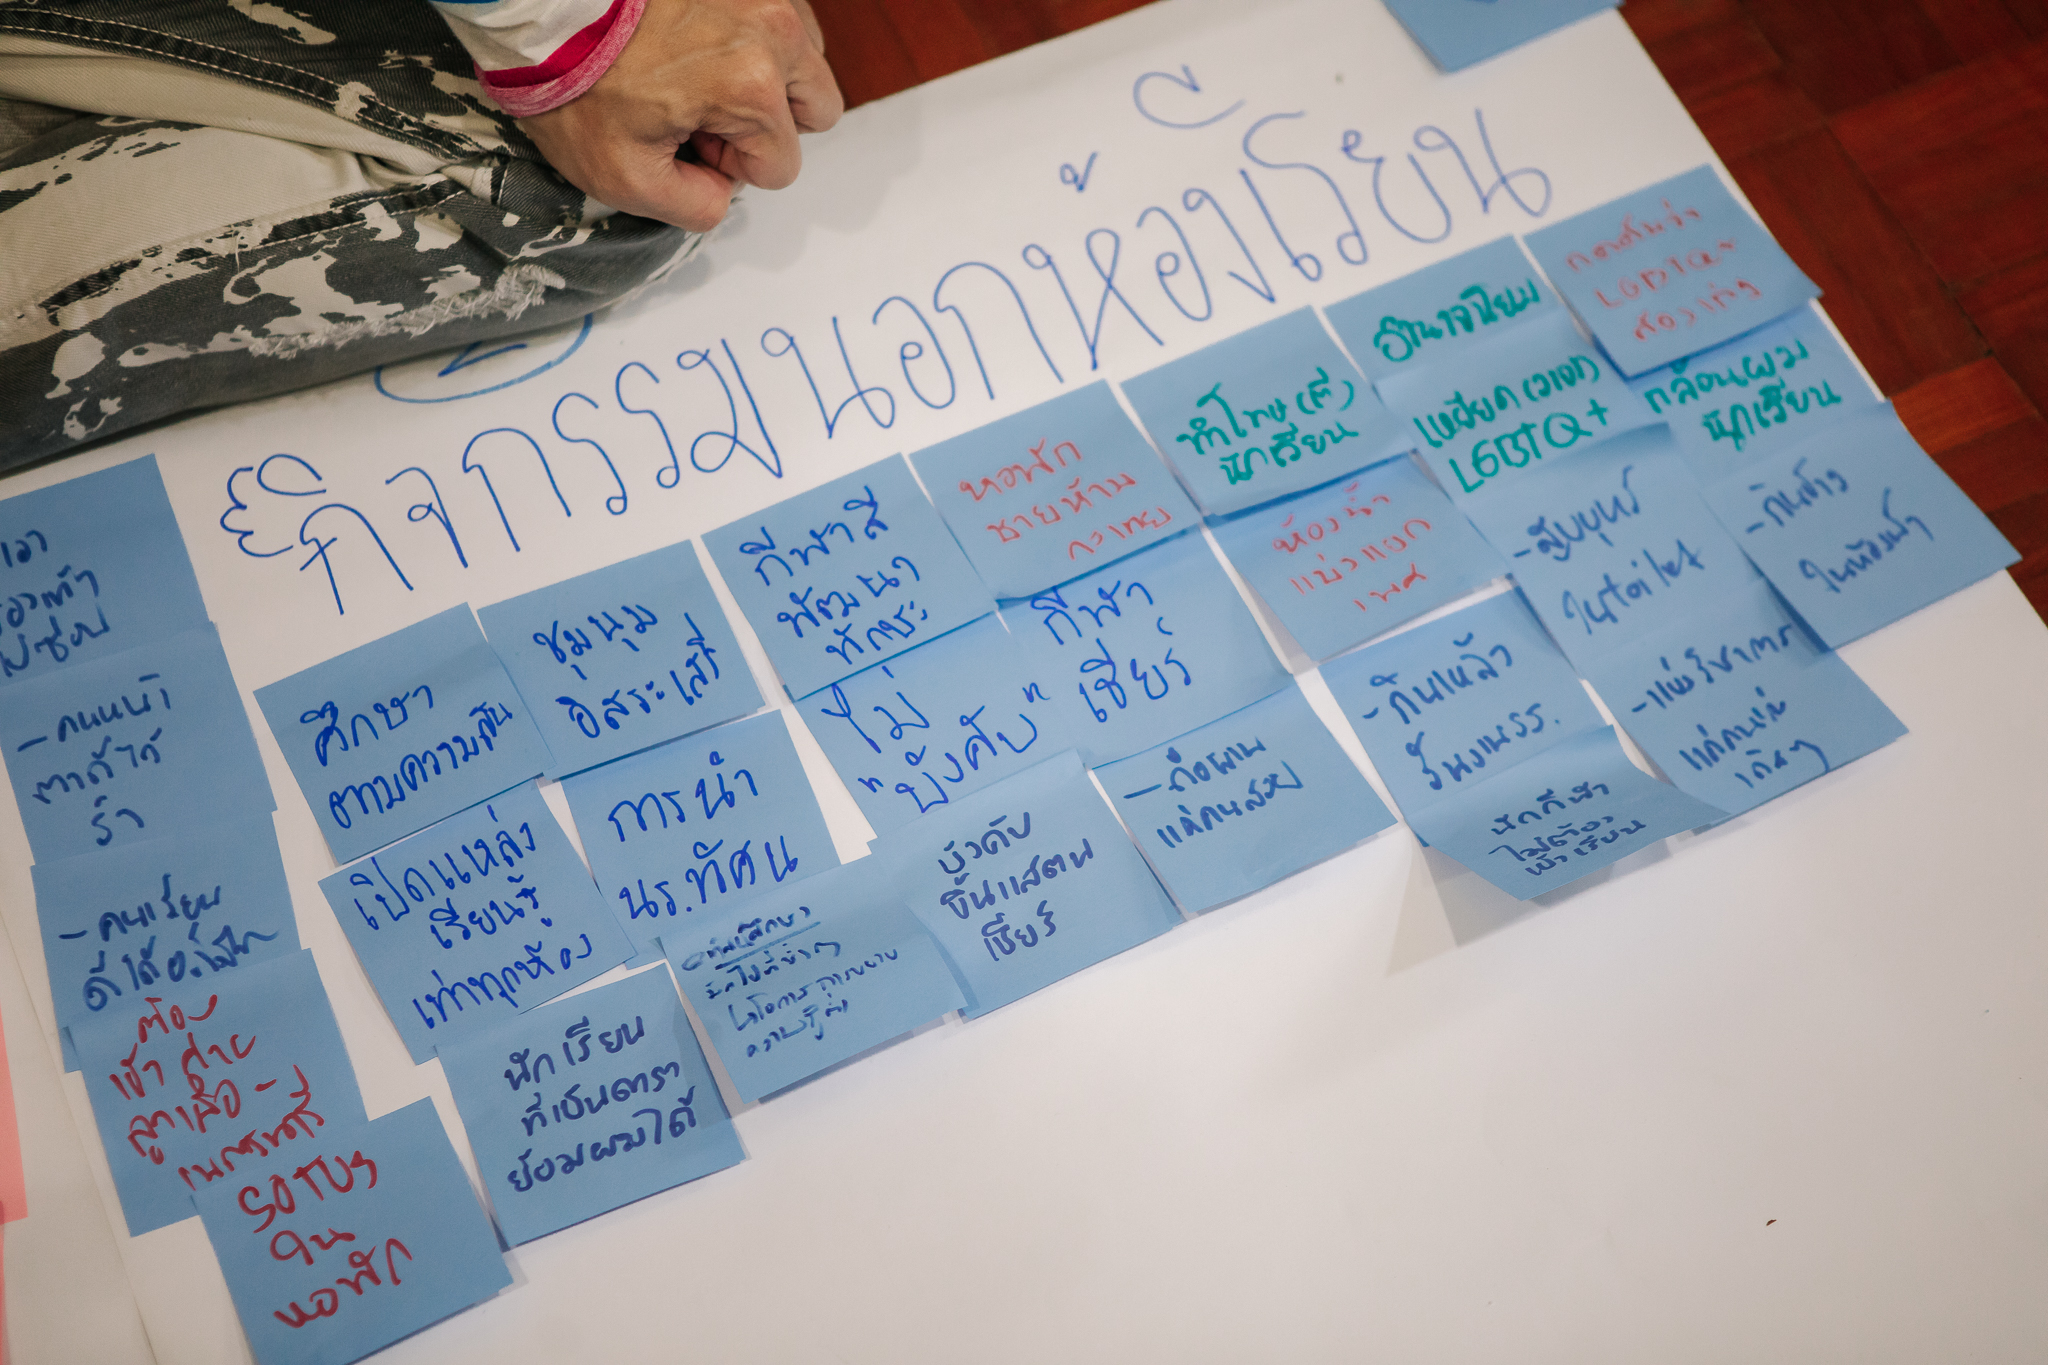 กิจกรรมนอกห้องเรียน
กีดกัน
LGBTQ+
อำนาจนิยม
เหยียด (วาจา)
LGBTQ+
กล้อนผม
นักเรียน
ทำโทษ (ตี)
นักเรียน
หอพัก
ชายห้าม
กะเทย
ห้องน้ำ
แบ่งแยก
เพศ
- สูบบุหรี่
ใน toilet
- กินข้าว
ในห้องน้ำ
กีฬาสี
พัฒนา
ทักษะ
ชุมนุม
อิสระเสรี
ศึกษา
ตามความสนใจ
กีฬา
เชียร์
ไม่
"บังคับ"
- กินเหล้า
วันงาน รร.
- แข่งวิชาการ
แค่คนเก่ง
เดิมๆ
- ถือพาน
แค่คนสวย
นักกีฬา
ไม่ต้อง
เข้าเรียน
การนำ
นร. ทัศน
เปิดแหล่ง
เรียนรู้
เท่าทุกห้อง
บังคับ
ขึ้นแสตน
เชียร์
ทัศนศึกษา
นักเรียน
ที่เป็นดารา
ย้อมผมได้
- คนหน้า
ตาดีได้
รำ
- คนเรียน
ต้อง
เข้าค่าย
ลูกเสือ -
เนตรนารี
SOTUS
ใน
หอพัก